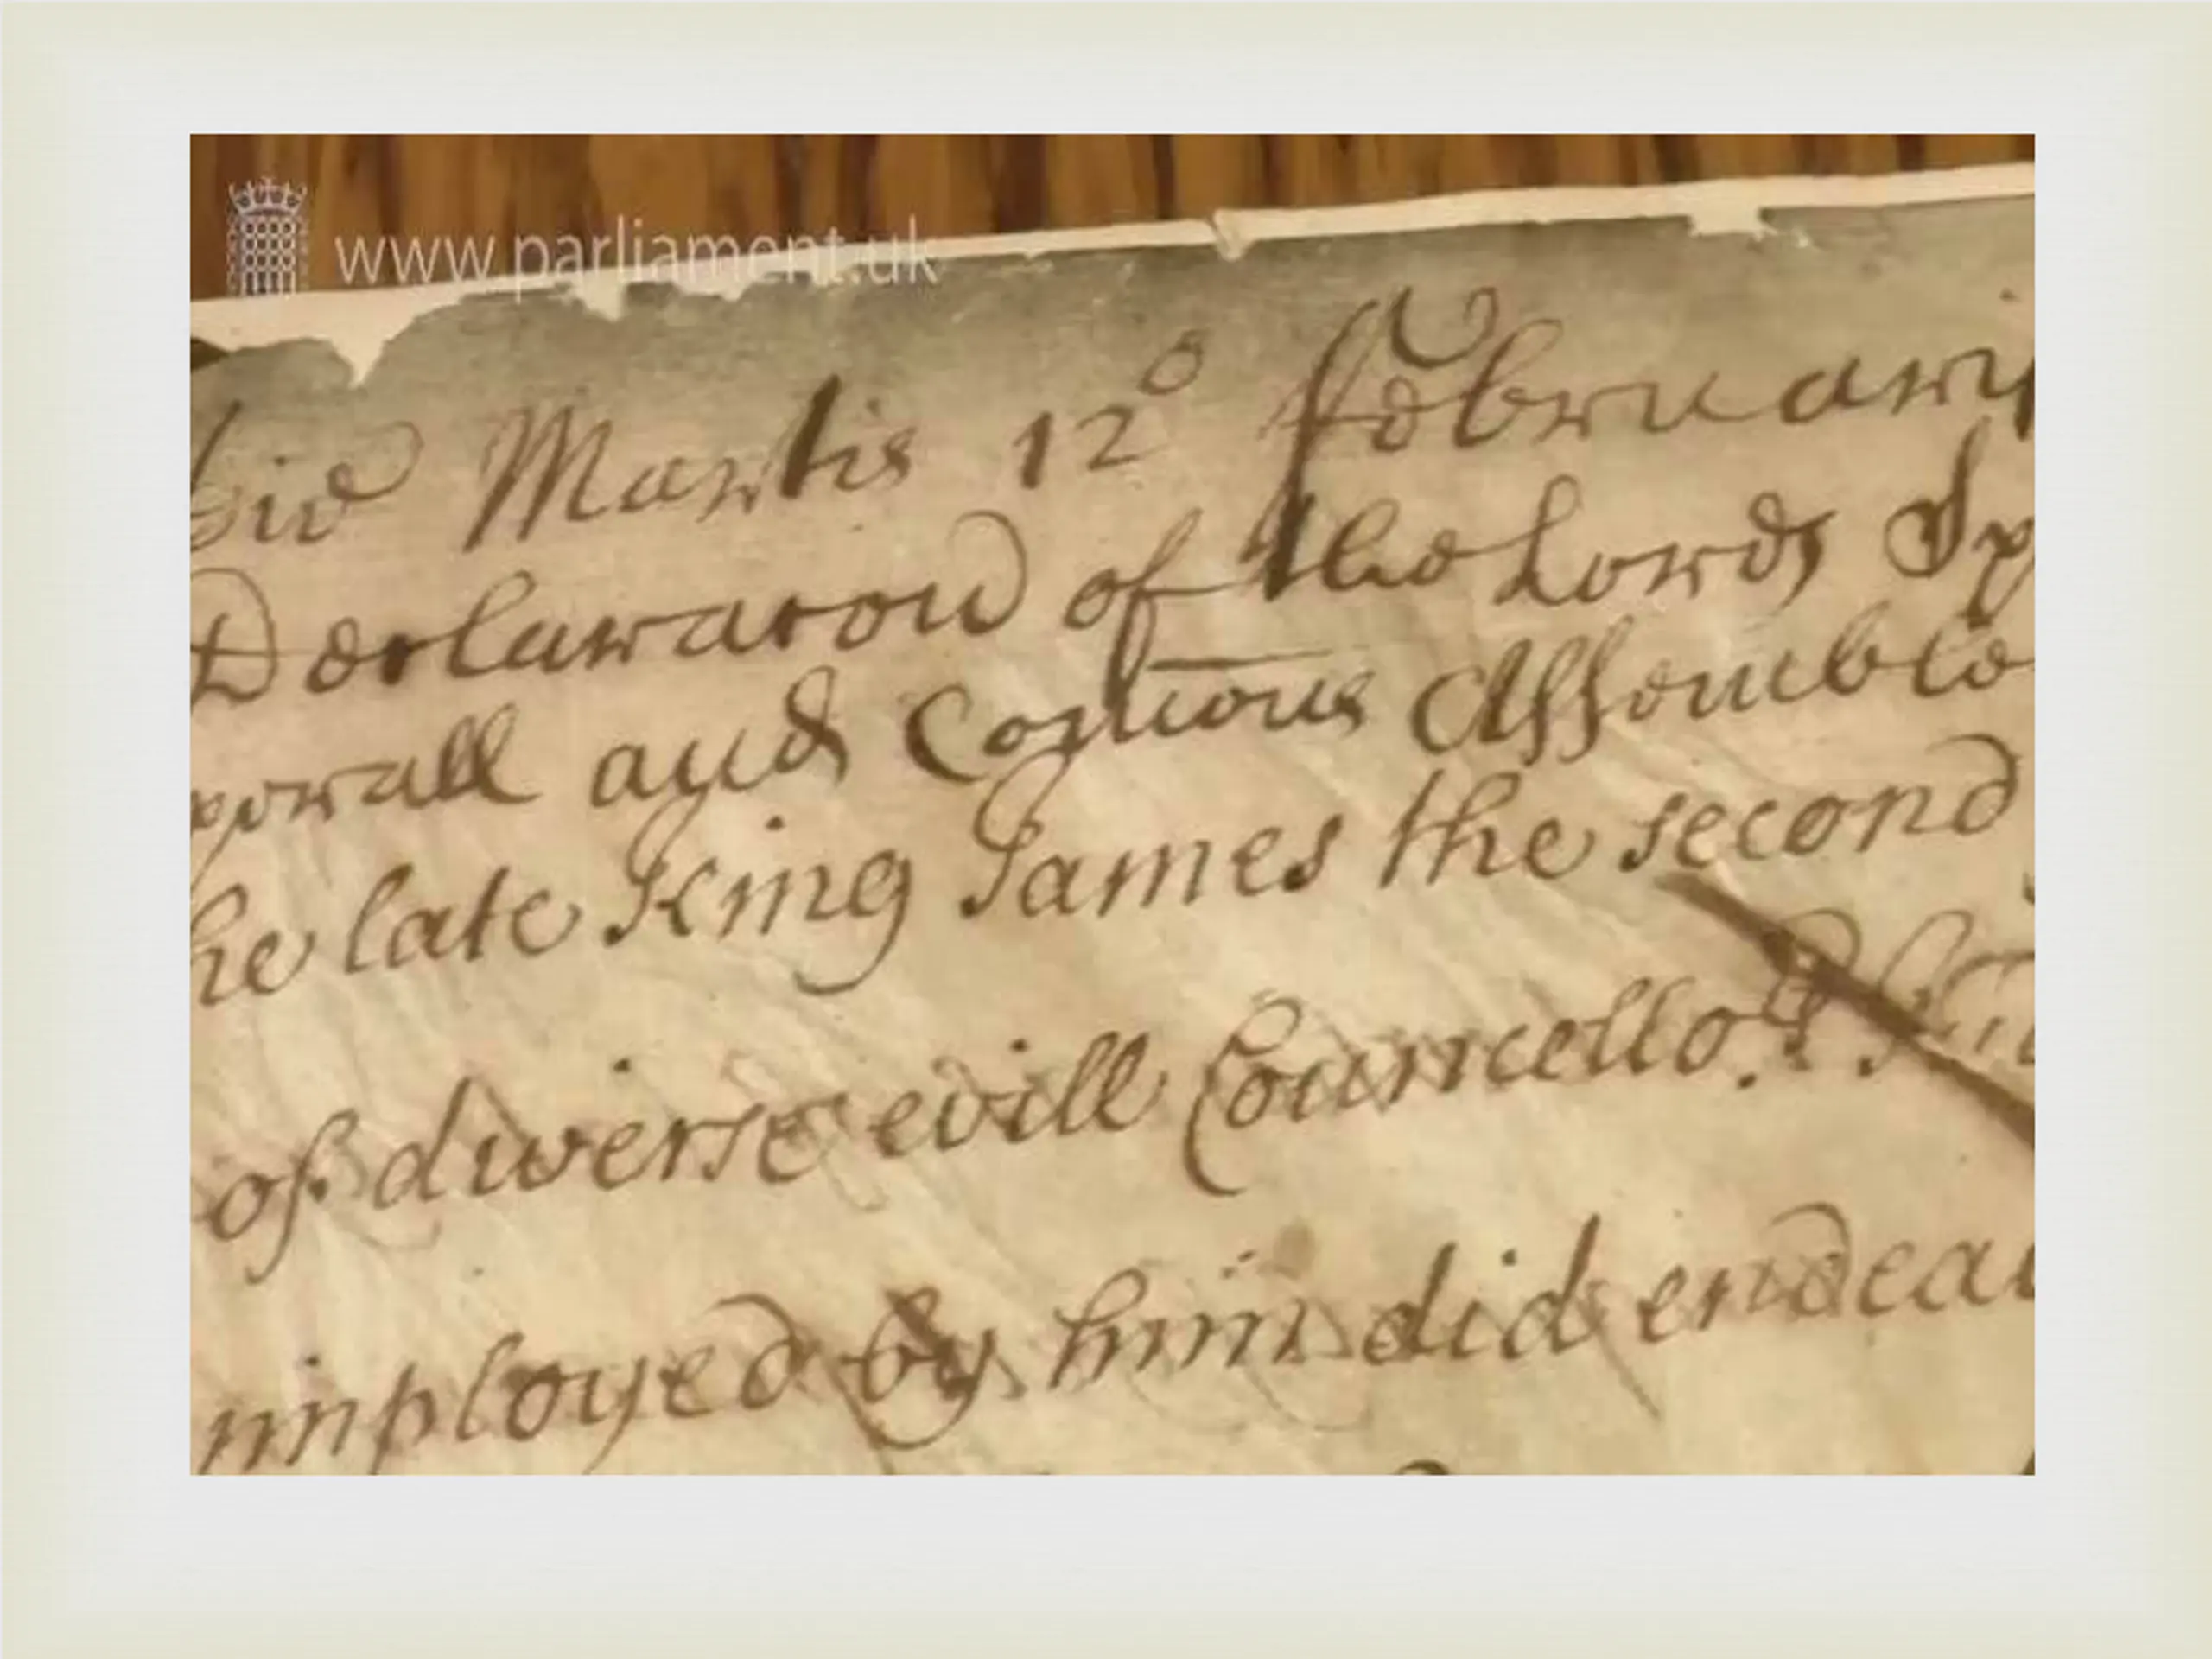 www.parliament.uk
Die Martis 12o February
Declaracon of the Lords Sp
porall and Comons Assemble
he late King James the second
of diverse evill Councellors
imployed by him did endeau